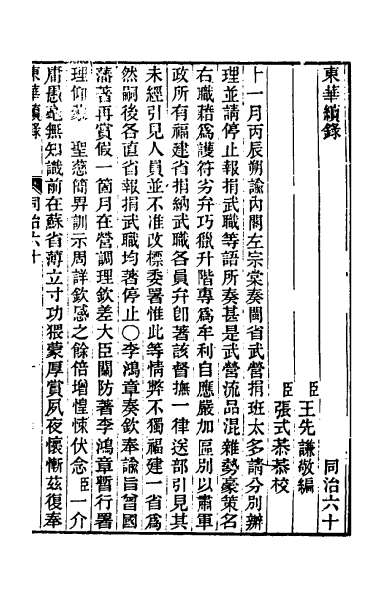 東華續錄
同治六十
臣王先謙敬編
臣張式恭恭校
十一月丙辰朔諭內閣左宗棠奏閩省武營捐班太多請分別辦
理並請停止報捐武職等語所奏甚是武營流品混雜勢豪策名
右職藉爲護符劣弁巧獵升階專爲牟利自應嚴加區別以肅軍
政所有福建省捐納武職各員弁卽著該督撫一律送部引見其
未經引見人員並不准收標委署惟此等情弊不獨福建一省爲
然嗣後各直省報捐武職均著停止〇李鴻章奏欽奉諭旨曾國
藩著再賞假一箇月在營調理欽差大臣關防著李鴻章暫行署
理仰蒙 聖慈簡畀訓示周詳欽感之餘倍增惶悚伏念臣一介
庸愚毫無知識前在蘇省薄立寸功猥蒙厚賞夙夜懷慚茲復奉
東華續錄 同治六十 一